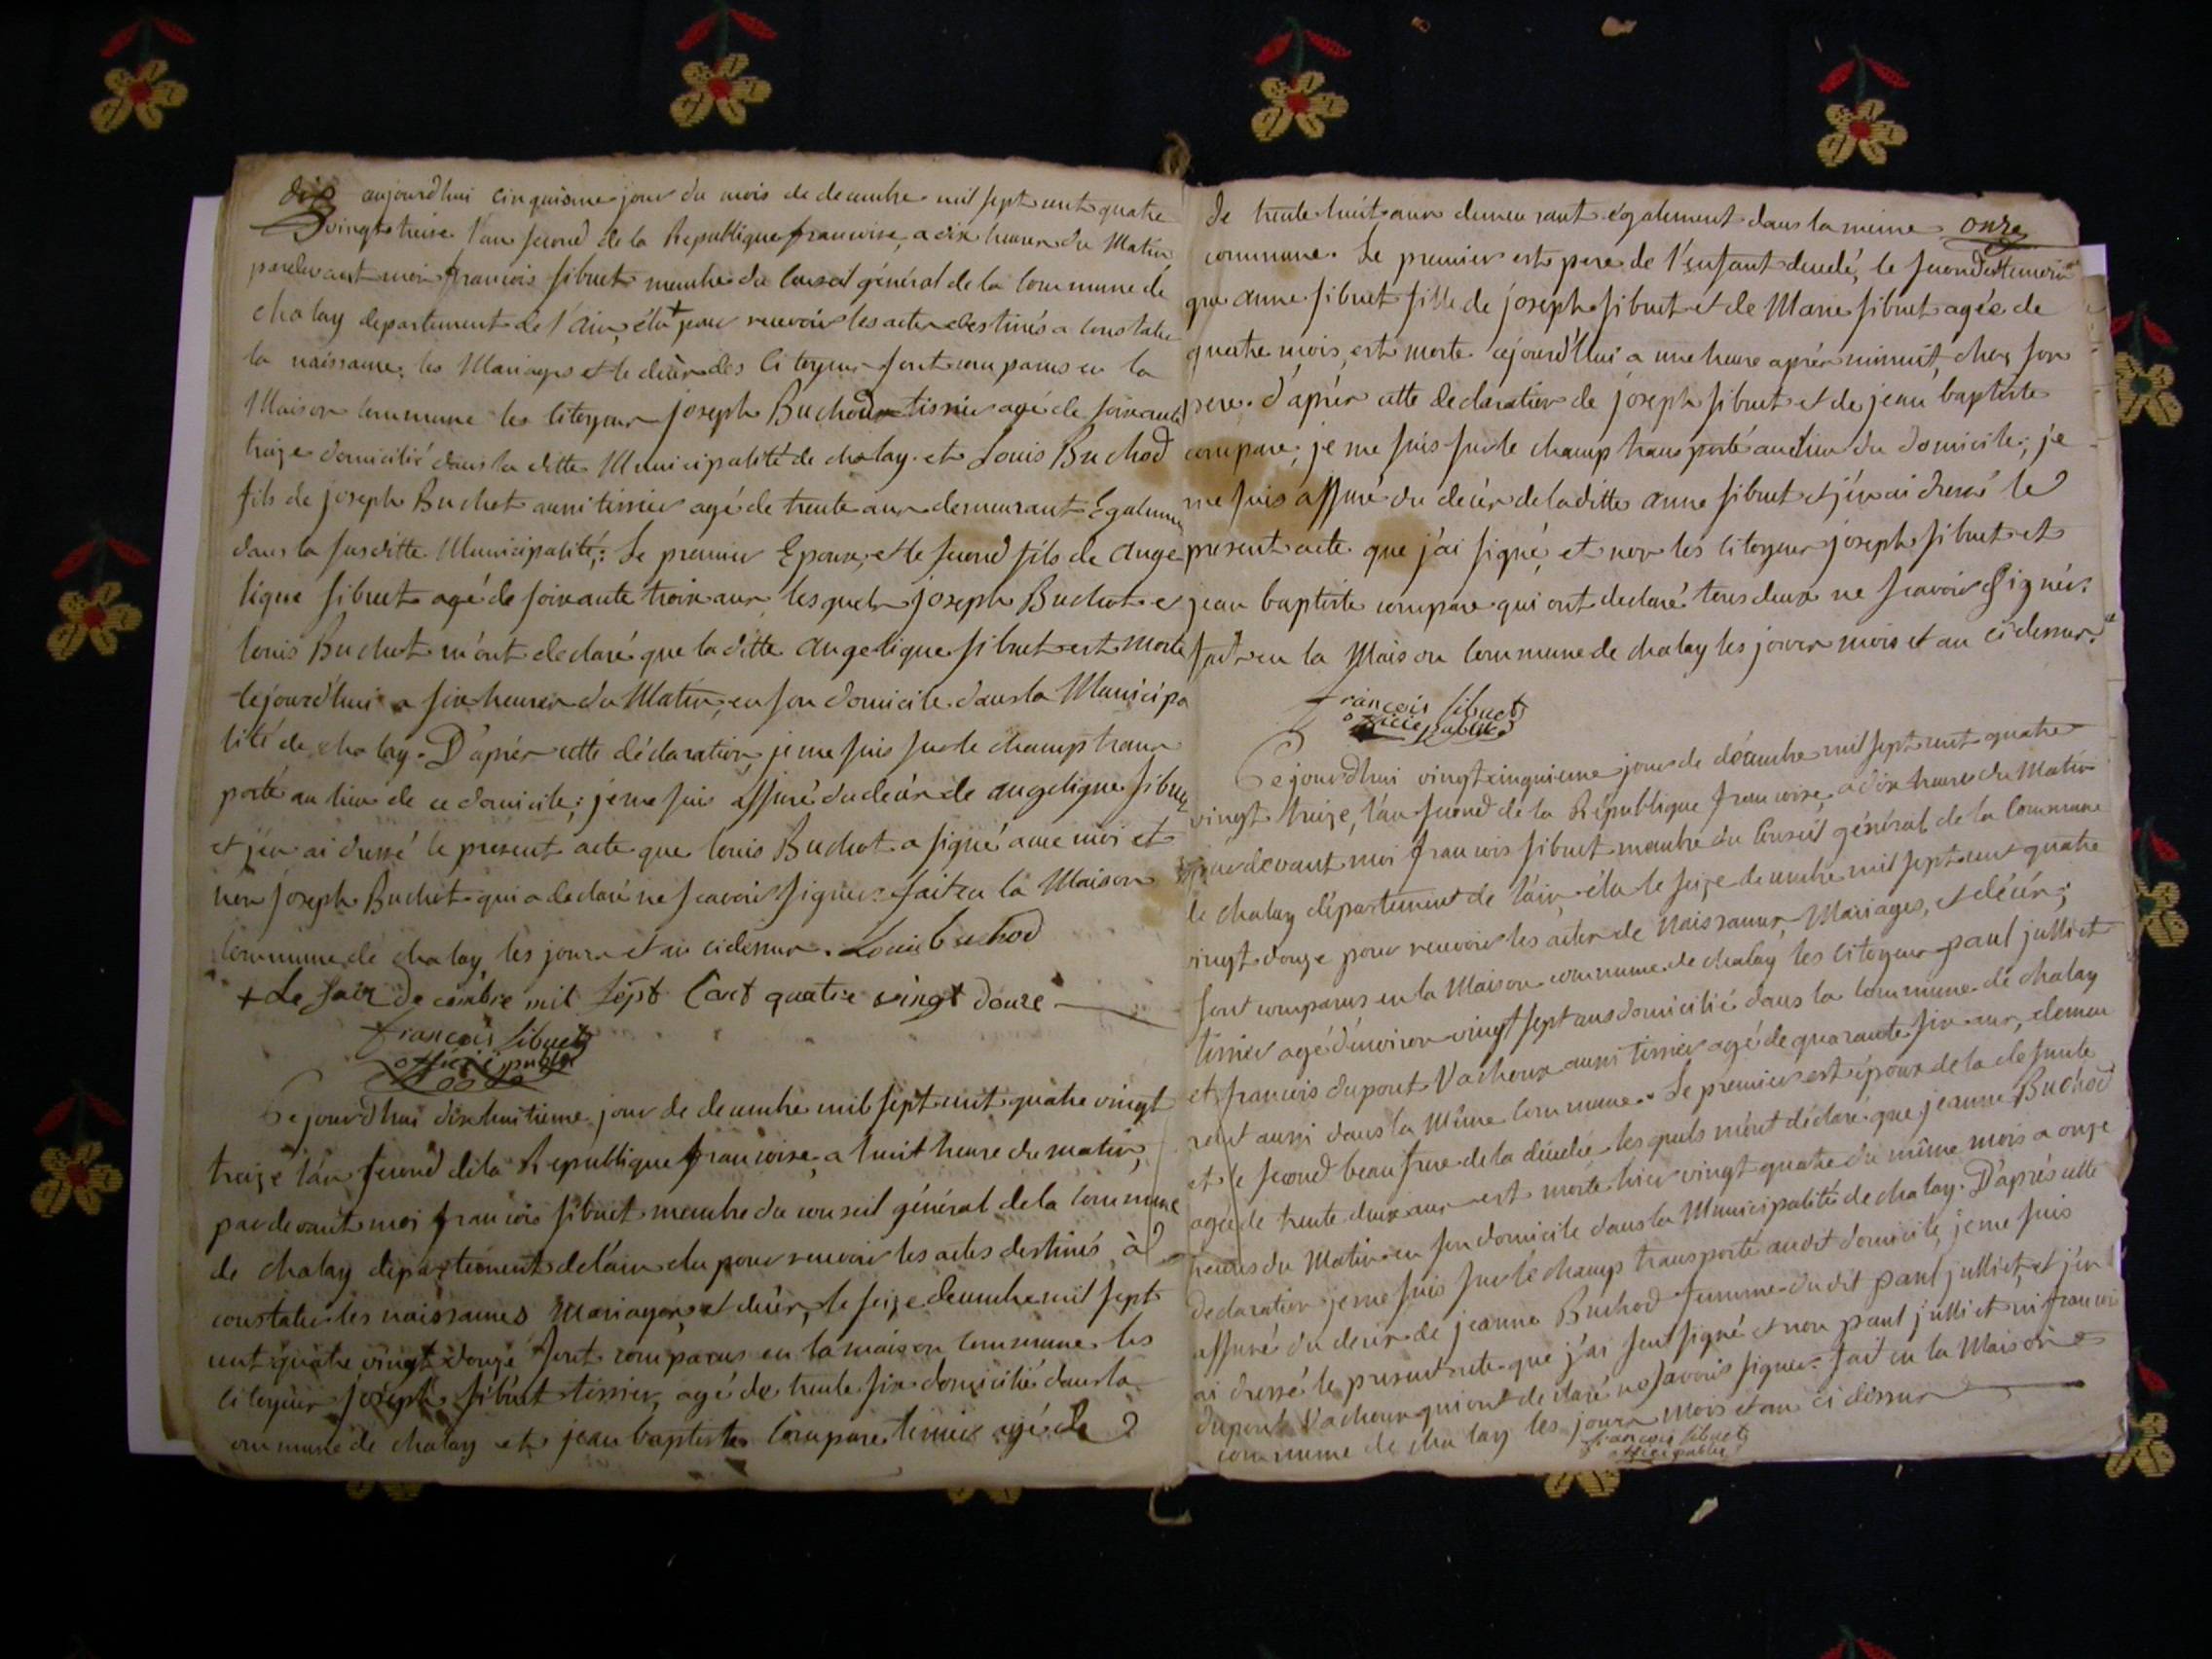 dix aujourdhui cinquieme jour du mois de decembre mil sept cent quatre
vingt treise l'an second de la Republique francoise, a dix heures du Matin
pardevant moi francois sibuet membre du Conseil général de la Commune de
chalay departement de l'ain, élu + pour recevoir les actes destinés a constater
la naissance, les Mariages et le décès des Citoyens sont comparus en la
Maison Commune les citoyens joseph Buchod tissier agé de soixante
treize domicilié dans la ditte Municipalité de chalay et Louis Buchod
fils de joseph Buchot aussi tissier agé de trente ans demeurant Egalement
dans la susditte Municipalité; Le premier Epoux, et le second fils de Ange
lique sibuet agé de soixante trois ans lesquels joseph Buchot et
louis Buchot m'ont declaré que la ditte angelique sibuet est morte
cejourd'hui a six heures du Matin, en son domicile dans la Municipa
lité de chalay. D'aprés cette déclaration, je me suis sur le champ trans
porté au lieu de ce domicile; je me suis assuré du décès de angelique sibuet
et j'en ai dressé le present acte que louis Buchot a signé avec moi et
non joseph Buchot qui a declaré ne scavoir signer. fait en la Maison
Commune de chalay, les jours et an cidessus. Louis buchod
+ Le saix decembre mil sept Cent quatre vingt douze
francois sibuet
officié public
Cejourdhui dix huitieme jour de decembre mil sept cent quatre vingt
treize l'an second de la Republique francoise, a huit heure du matin,
pardevant moi francois sibuet membre du conseil général de la commune
de chalay departement de l'ain elu pour recevoir les actes destinés à
constater les naissances Mariages, et décès, le seize decembre mil sept
cent quatre vingt douze sont comparus en la maison commune les
citoyens joseph sibuet tissier, agé de trente six domicilié dans la
commune de chalay et jean baptiste Compare tissier agé de
de trente huit ans demeurant également dans la même onze
commune. Le premier est pere de l'enfant decedé, le second temoin
que anne sibuet fille de joseph sibuet et de Marie sibuet agée de
quatre mois, est morte cejourd'hui a une heure aprés minuit, chez son
pere. d'aprés cette declaration de joseph sibuet et de jean baptiste
compare; je me suis sur le champ transporté au lieu du domicile; je
me suis assuré du décès de laditte anne sibuet et j'en ai dressé le
present acte que j'ai signé, et non les citoyens joseph sibuet et
jean baptiste compare qui ont declaré tous deux ne scavoir signér.
fait en la Maison Commune de chalay les jours mois et an ci dessus.
francois sibuet
officié public
Cejourdhui vingt cinquieme jour de décembre mil sept cent quatre
vingt treize, l'an second de la République francoise, a dix heures du Matin
pardevant moi francois sibuet membre du Conseil général de la Commune
de chalay département de l'ain, élu le seize decembre mil sept cent quatre
vingt douze pour recevoir les actes de Naissances, Mariages, et décès;
sont comparus en la Maison commune de chalay les citoyens paul julliet
tissier agé d'environ vingt sept ans domicilié dans la Commune de chalay
et francois dupont Vachoux aussi tissier agé de quarante six ans, demeu
rant aussi dans la Même Commune. Le premier est époux de la defunte
et le second beau frere de la décédée lesquels m'ont déclaré que jeanne Buchod
agée de trente deux ans est morte hier vingt quatre du même mois a onze
heures du Matin en son domicile dans la Municipalité de chalay. D'aprés cette
declaration je me suis sur le champ transporté audit domicile, je me suis
assuré du décès de jeanne Buchod femme du dit paul julliet, et j'en
ai dressé le present acte que j'ai seul signé et non paul julliet ni francois
dupont Vachoux qui ont declaré ne savoir signer. fait en la Maison
commune de chalay les jours Mois et an ci dessus
francois sibuet
officié public